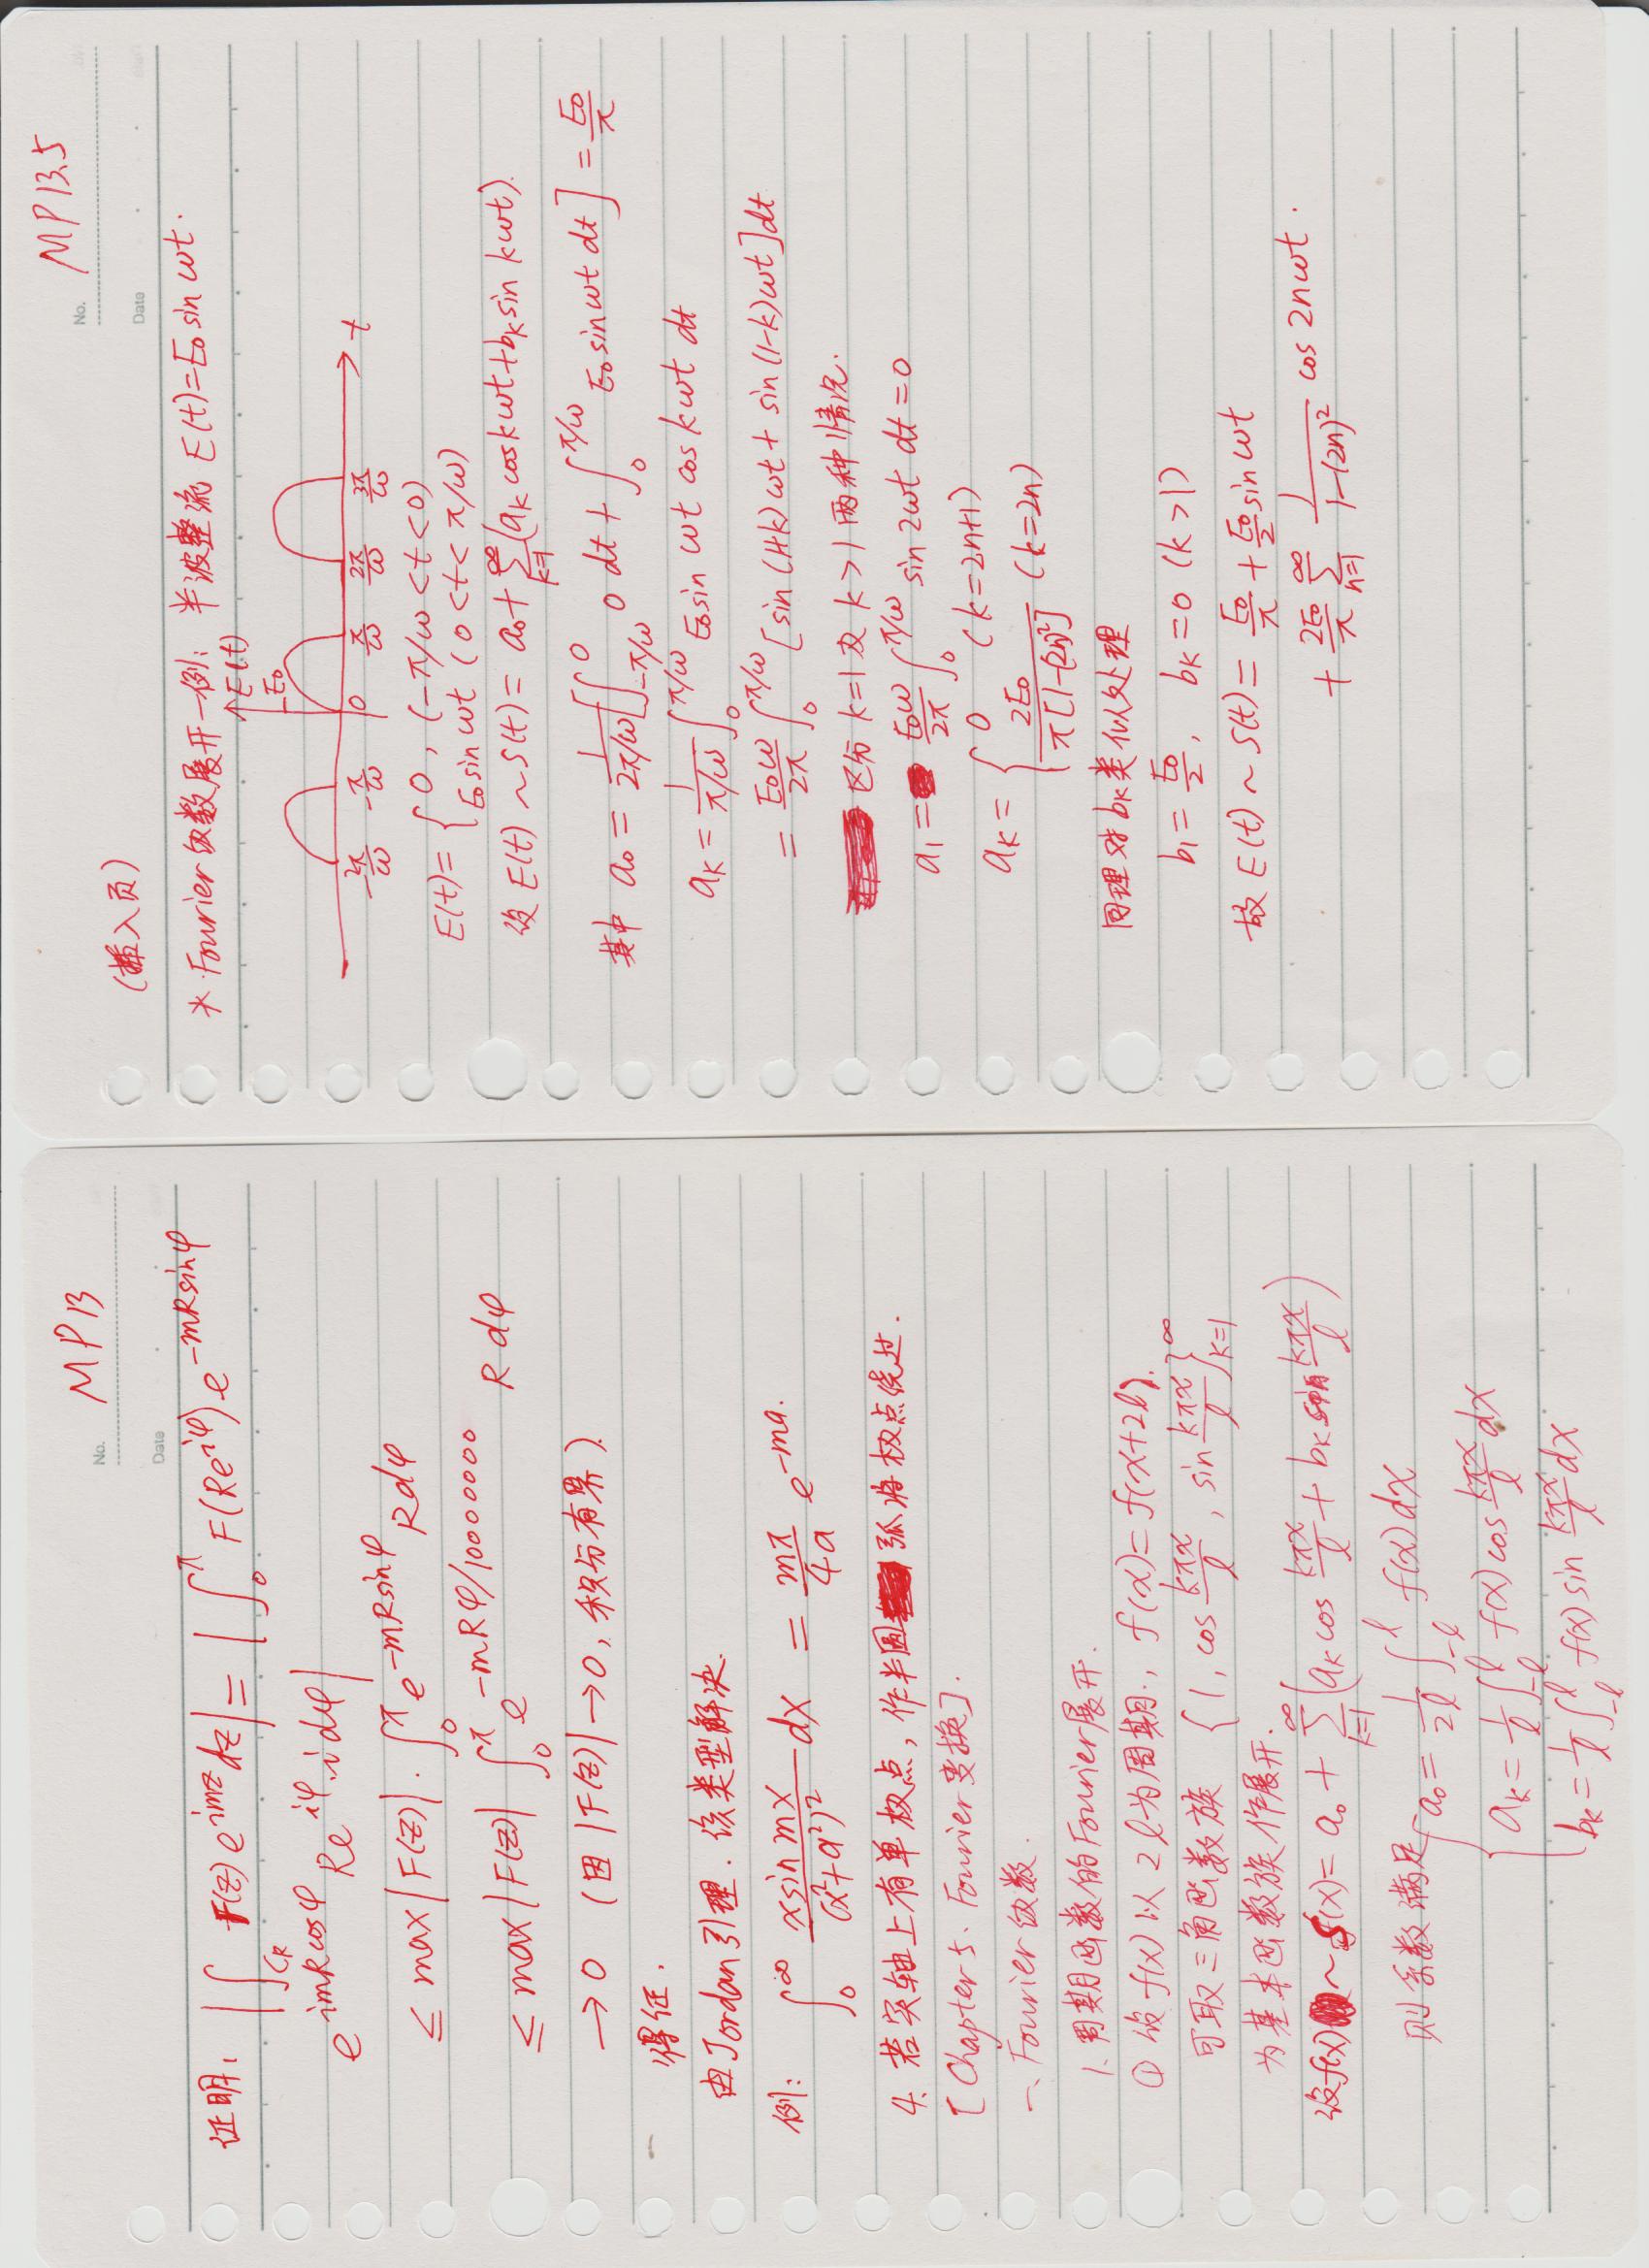 No. MP13
Date
证明: |∫_{C_R} F(z) e^{imz} dz| = |∫_0^π F(Re^{iφ}) e^{-mRsinφ}
e^{imRcosφ} Re^{iφ}·i dφ|
≤ max|F(z)|·∫_0^π e^{-mRsinφ} R dφ
≤ max|F(z)| ∫_0^π e^{-mRφ/10000000} R dφ
→0 (因|F(z)|→0, 积分有界).
得证.
由Jordan引理. 该类型解决.
例: ∫_0^∞ \frac{x sin mx}{(x²+a²)²} dx = \frac{mπ}{4a} e^{-ma}.
4. 若实轴上有单极点, 作半圆弧将极点绕过.
[Chapter 5. Fourier变换].
一、Fourier级数.
1. 周期函数的Fourier展开.
① 设f(x)以2l为周期., f(x)=f(x+2l).
可取三角函数族 {1, cos\frac{kπx}{l}, sin\frac{kπx}{l}}_{k=1}^∞
为基本函数族作展开.
设f(x) ~ S(x) = a₀ + Σ_{k=1}^∞ (a_k cos\frac{kπx}{l} + b_k sin\frac{kπx}{l})
则系数满足 { a₀ = \frac{1}{2l} ∫_{-l}^l f(x) dx
a_k = \frac{1}{l} ∫_{-l}^l f(x) cos\frac{kπx}{l} dx
b_k = \frac{1}{l} ∫_{-l}^l f(x) sin\frac{kπx}{l} dx
No. MP13.5
Date
(插入页)
* Fourier级数展开一例: 半波整流 E(t)=E₀ sin ωt.
E(t)
E₀
-\frac{2π}{ω} -\frac{π}{ω} 0 \frac{π}{ω} \frac{2π}{ω} \frac{3π}{ω} t
E(t) = { 0, (-π/ω<t<0)
E₀ sin ωt (0<t<π/ω)
设 E(t) ~ S(t) = a₀ + Σ_{k=1}^∞ (a_k cos kωt + b_k sin kωt).
其中 a₀ = \frac{1}{2π/ω} [∫_{-π/ω}^0 0 dt + ∫_0^{π/ω} E₀ sin ωt dt] = \frac{E₀}{π}
a_k = \frac{1}{π/ω} ∫_0^{π/ω} E₀ sin ωt cos kωt dt
= \frac{E₀ω}{2π} ∫_0^{π/ω} [sin(1+k)ωt + sin(1-k)ωt] dt
区分 k=1 及 k>1 两种情况.
a₁ = \frac{E₀ω}{2π} ∫_0^{π/ω} sin 2ωt dt = 0
a_k = { 0 (k=2n+1)
\frac{2E₀}{π[1-(2n)²]} (k=2n)
同理对 b_k 类似处理
b₁ = \frac{E₀}{2}, b_k = 0 (k>1)
故 E(t) ~ S(t) = \frac{E₀}{π} + \frac{E₀}{2} sin ωt
+ \frac{2E₀}{π} Σ_{n=1}^∞ \frac{1}{1-(2n)²} cos 2nωt.